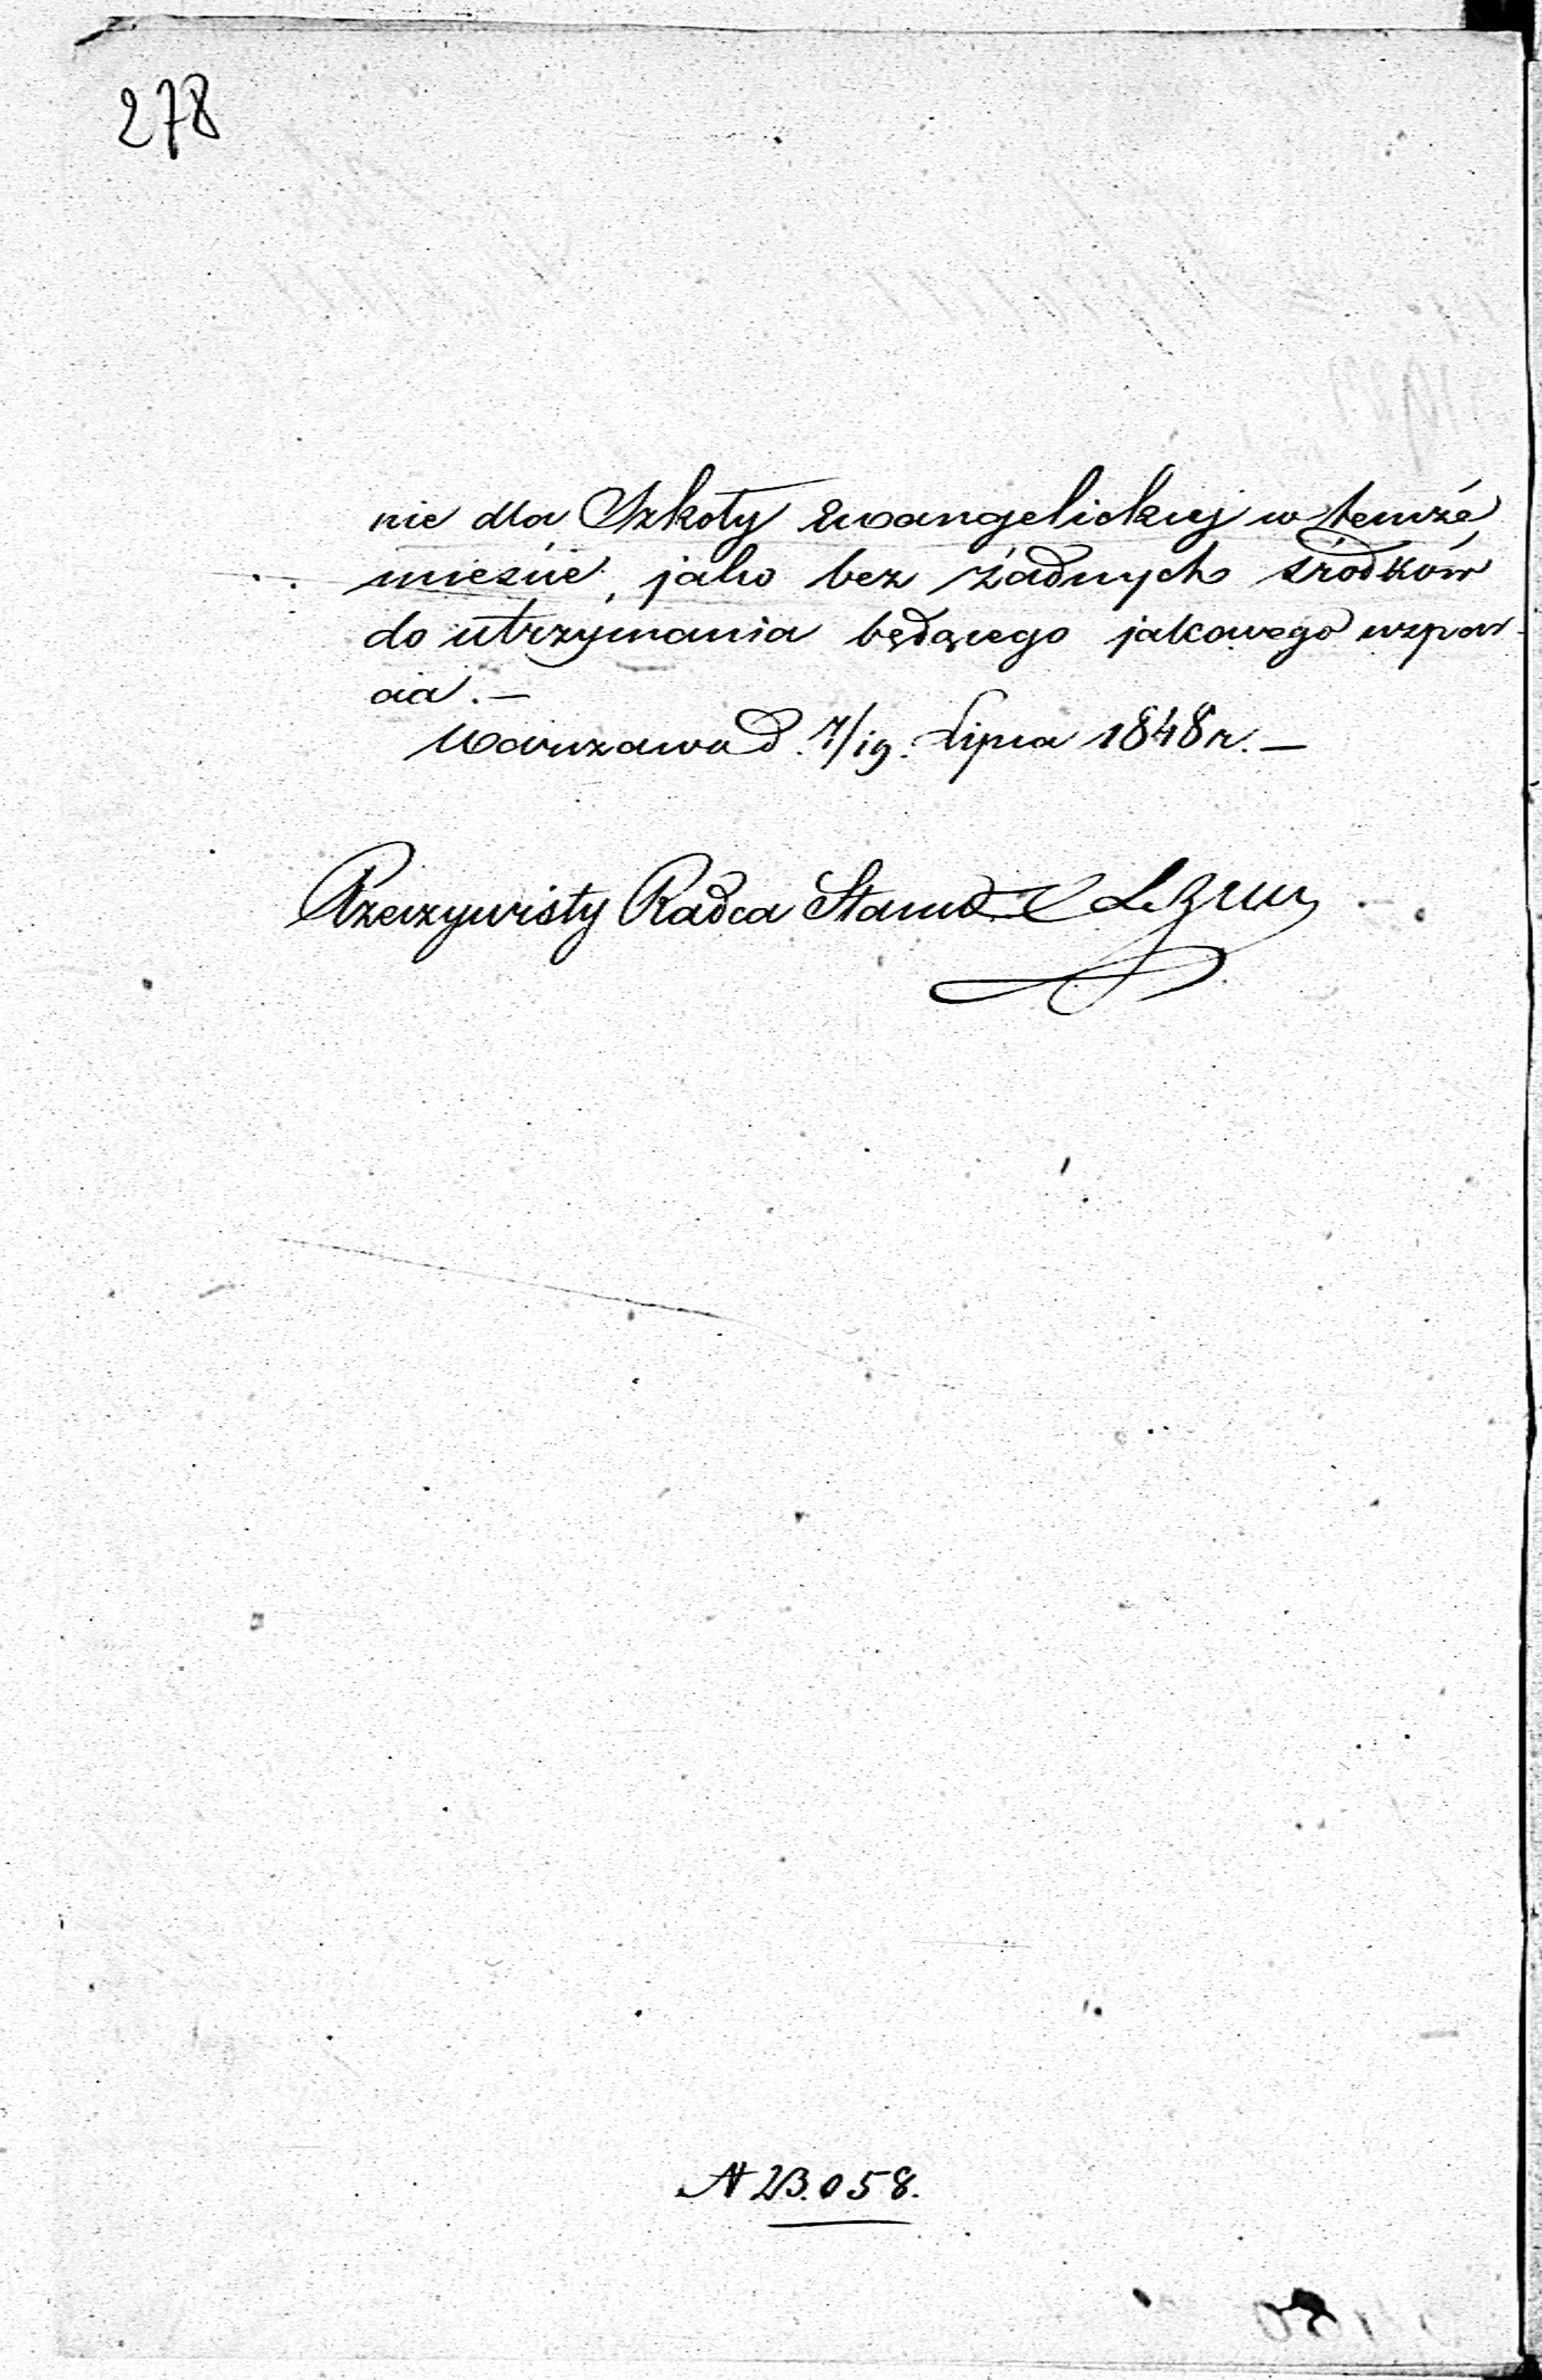 278
nie dla Szkoły Ewangelickiej w temże
mieście, jako bez żadnych środków
do utrzymania będącego jakowego wspar-
cia. —
Warszawa d. 7/19. Lipca 1848 r. —
Rzeczywisty Radca Stanu
N 23.058.